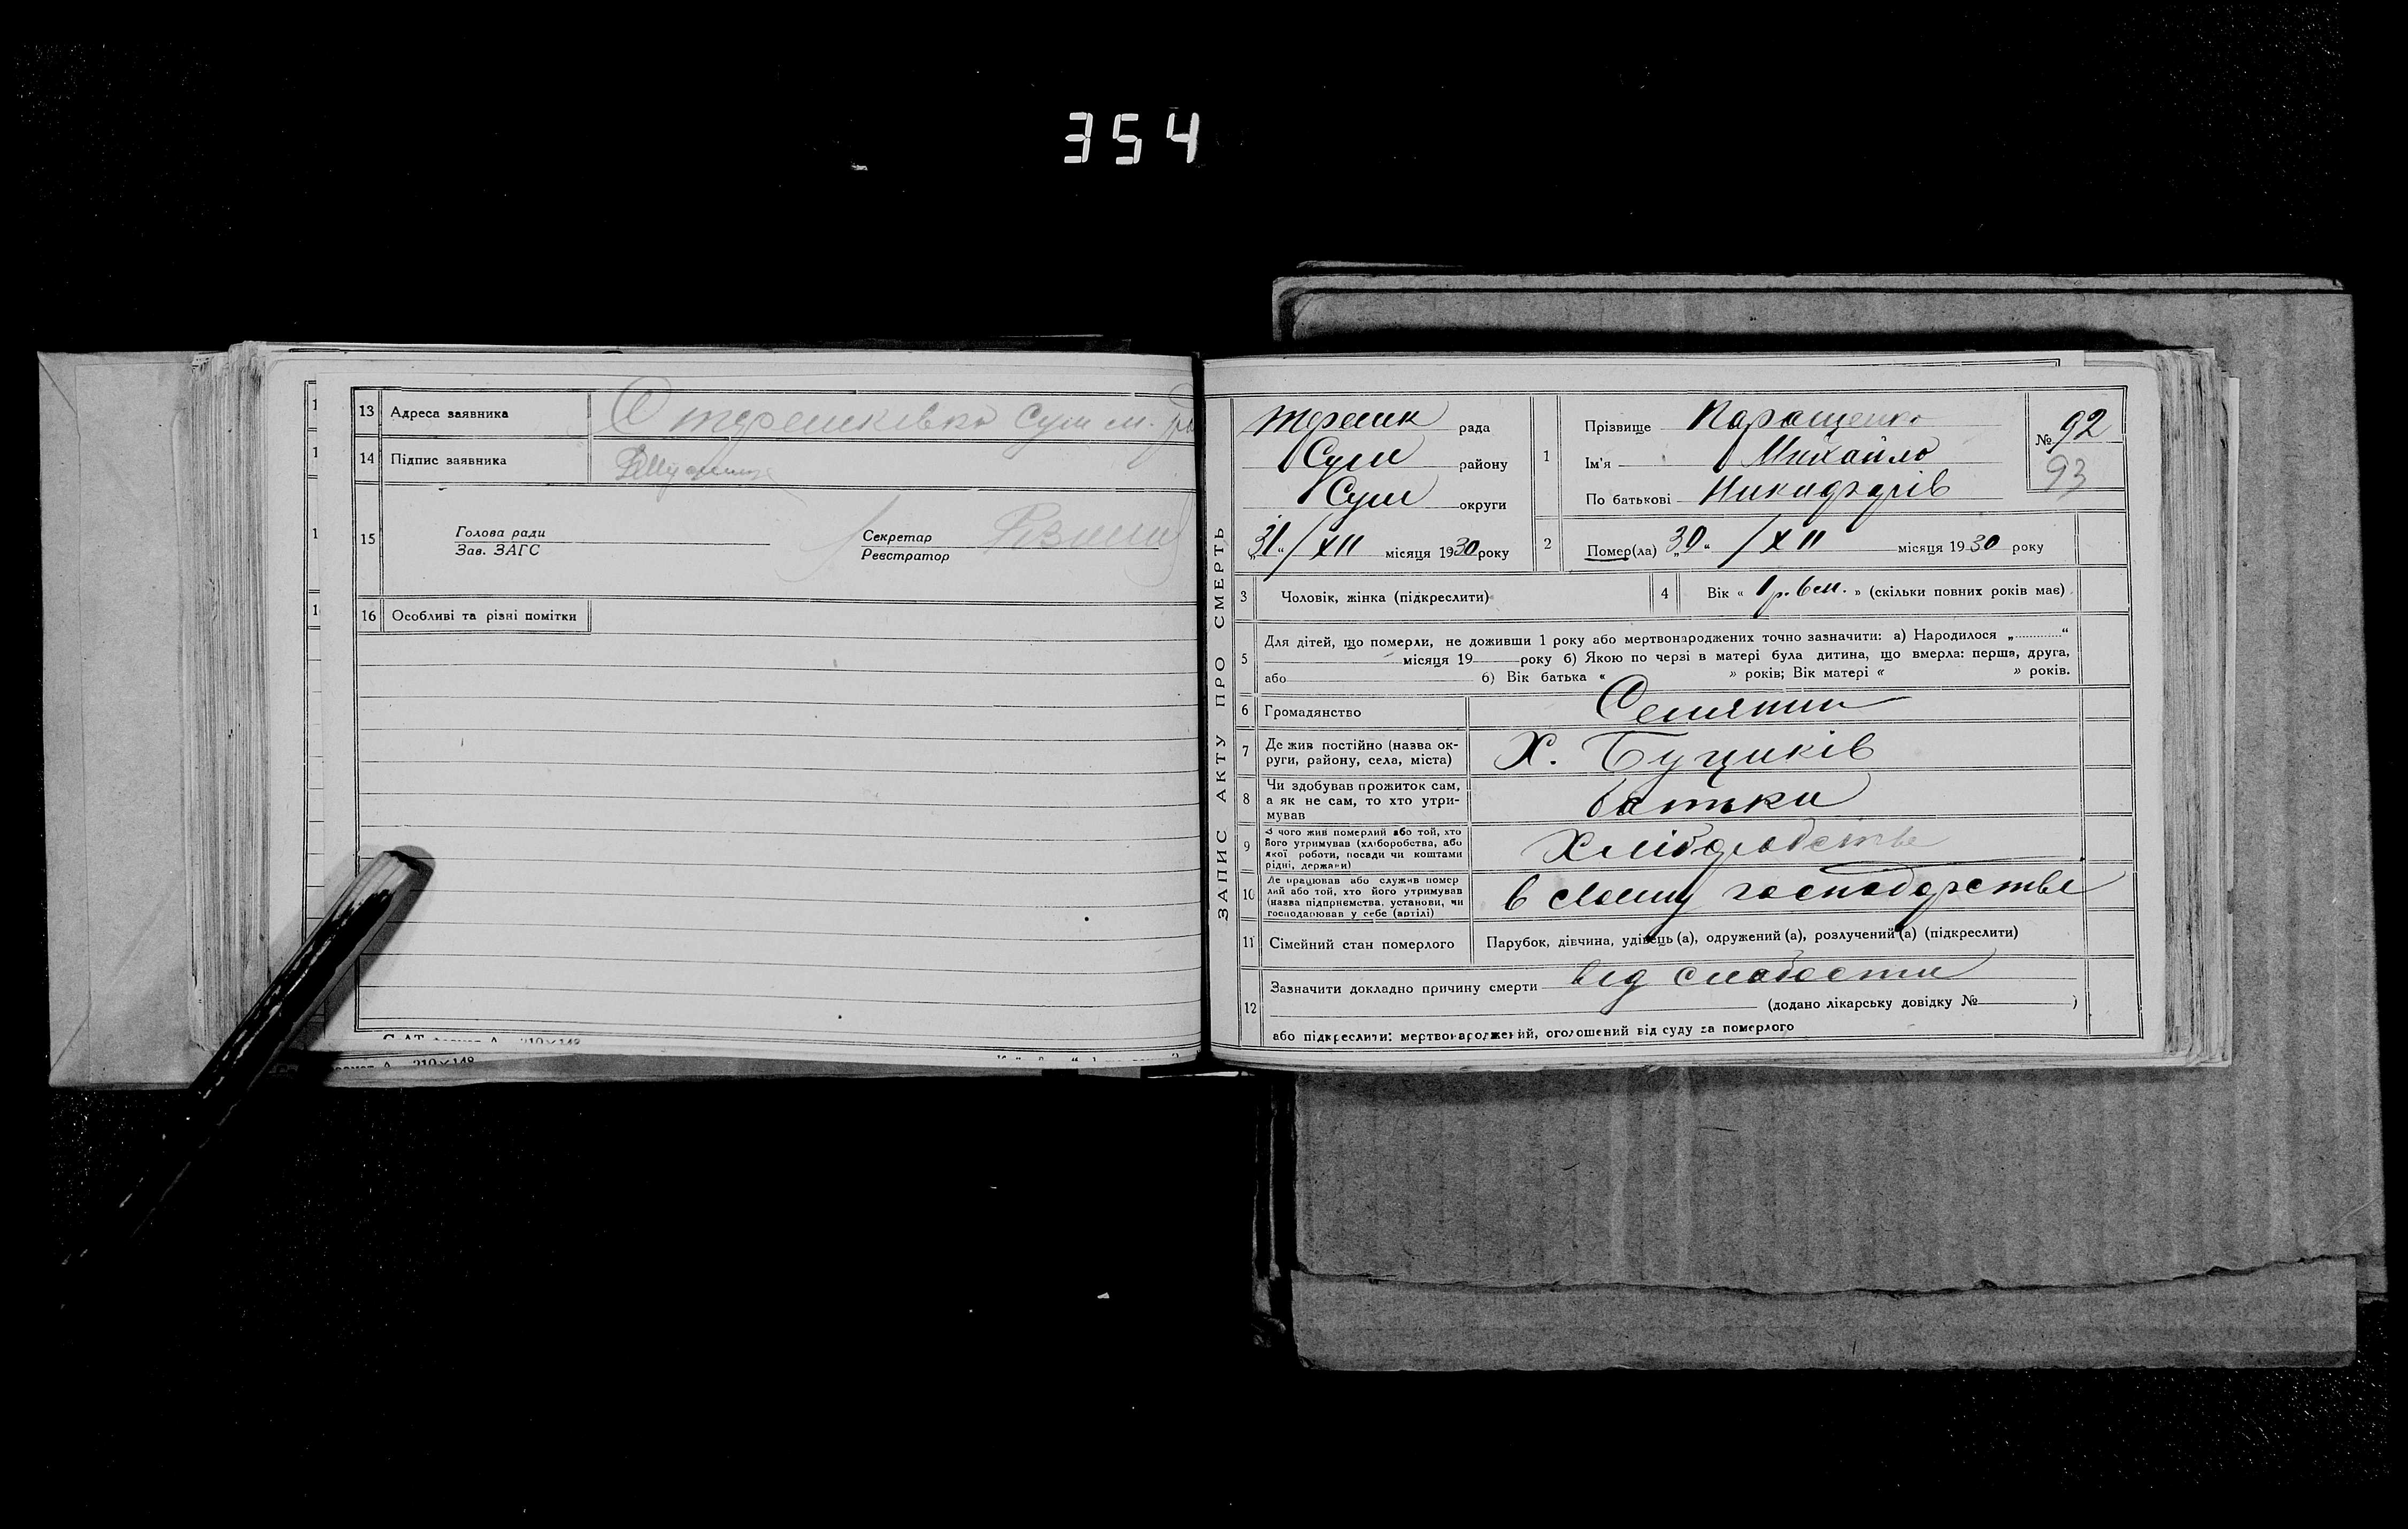 354
13 Адреса заявника С терешківка Сум
14 Підпис заявника
15 Голова ради
Зав. ЗАГС
Секретар
Реєстратор
16 Особливі та різні помітки
210×148
210×148
ЗАПИС АКТУ ПРО СМЕРТЬ
терешк рада
Сум району
Сум округи
„31“ / XII місяця 1930 року
1 Прізвище Каращенко
Ім'я Михайло
По батькові Никифорів
№ 92
93
2 Помер(ла) „30“ / XII місяця 1930 року
3 Чоловік, жінка (підкреслити)
4 Вік « 1 р. 6 м. » (скільки повних років має)
5 Для дітей, що померли, не доживши 1 року або мертвонароджених точно зазначити: а) Народилося „ “
місяця 19 року б) Якою по черзі в матері була дитина, що вмерла: перша, друга,
або б) Вік батька « » років; Вік матері « » років.
6 Громадянство Селянин
7 Де жив постійно (назва ок-
руги, району, села, міста) Х. Буциків
8 Чи здобував прожиток сам,
а як не сам, то хто утри-
мував батьки
9 З чого жив померлий або той, хто
його утримував (хліборобства, або
якої роботи, посади чи коштами
рідні, держави) Хліборобстве
10 Де працював або служив помер
лий або той, хто його утримував
(назва підприємства, установи, чи
господарював у себе (артілі) в своему господарстве
11 Сімейний стан померлого Парубок, дівчина, удівець (а), одружений (а), розлучений (а) (підкреслити)
12 Зазначити докладно причину смерти від слабости
(додано лікарську довідку № )
або підкреслити: мертвонароджений, оголошений від суду за померлого